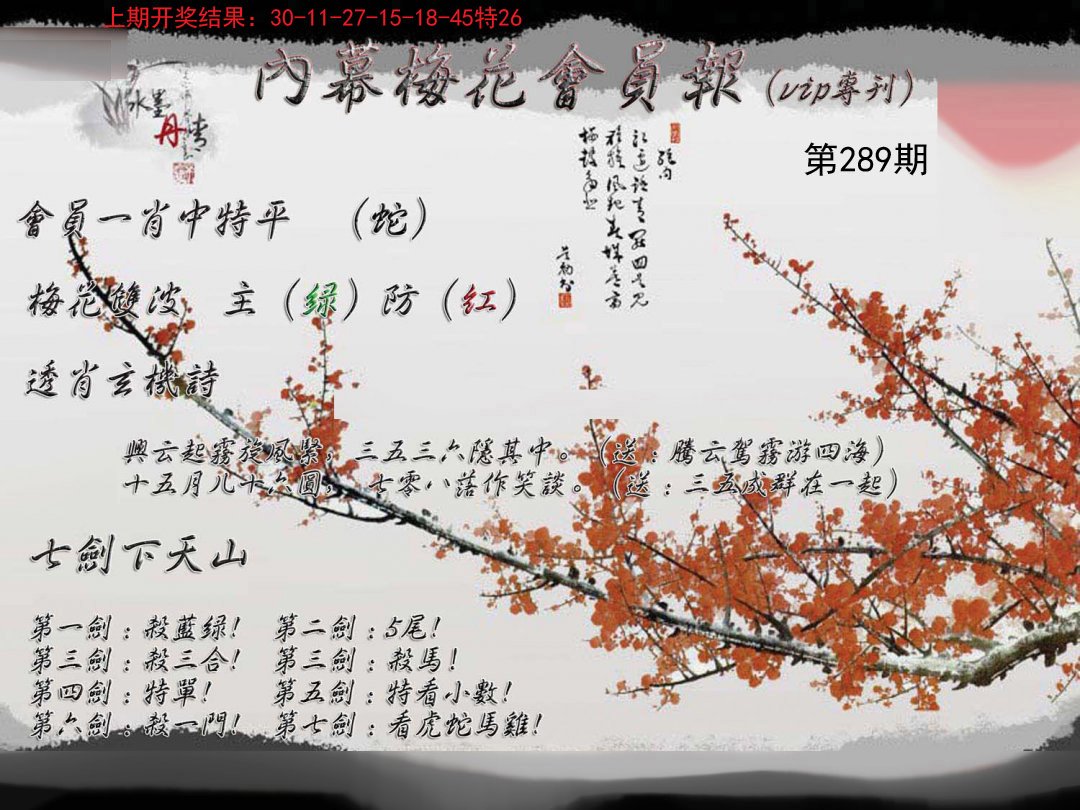 上期开奖结果：30-11-27-15-18-45特26
內幕梅花會員報（vip專刊）
水墨
丹青
第289期
會員一肖中特平 （蛇）
梅花雙波 主（绿）防（红）
透肖玄機詩
興云起霧旋風緊，三五三六隱其中。（送：騰云駕霧游四海）
十五月儿十六圓，七零八落作笑談。（送：三五成群在一起）
七劍下天山
第一劍：殺藍绿！ 第二劍：5尾！
第三劍：殺三合！ 第三劍：殺馬！
第四劍：特單！ 第五劍：特看小數！
第六劍：殺一門！ 第七劍：看虎蛇馬雞！